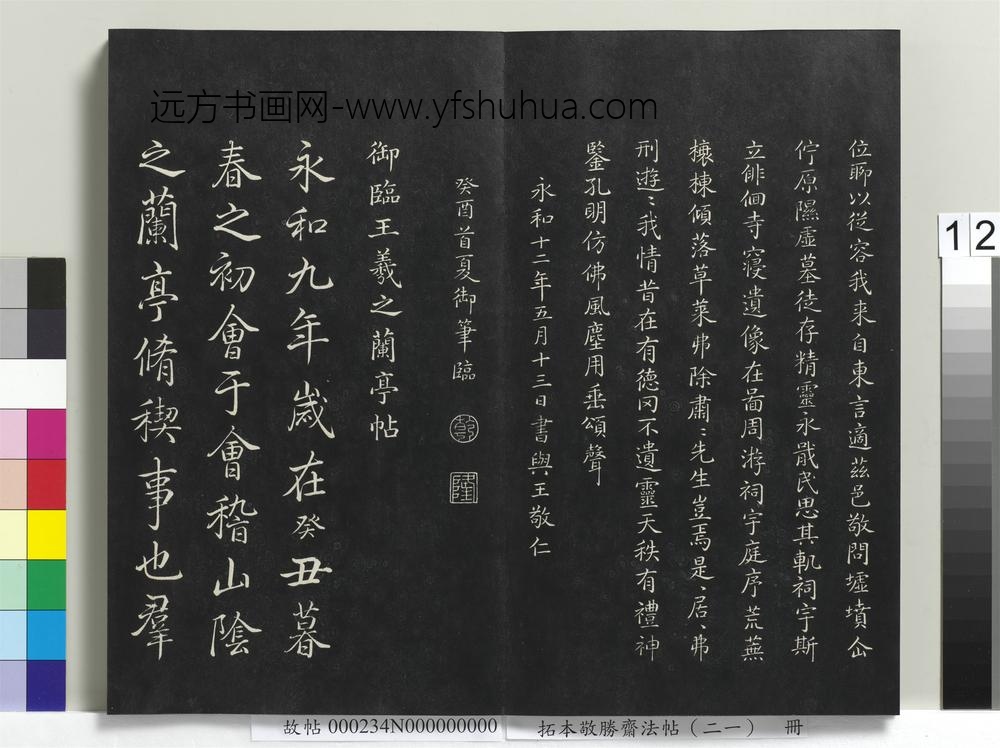 远方书画网-www.yfshuhua.com
位聊以從容我来自東言適茲邑敬問墟墳企
佇原隰虛墓徒存精靈永戢民思其軌祠宇斯
立俳佪寺寢遺像在啚周游祠宇庭序荒蕪
榱棟傾落草萊弗除肅〻先生豈焉是〻居〻弗
刑遊〻我情昔在有德罔不遺靈天秩有禮神
鑒孔明仿佛風塵用垂頌聲
永和十二年五月十三日書與王敬仁
癸酉首夏御筆臨
乾
隆
御臨王羲之蘭亭帖
永和九年歲在癸丑暮
春之初會于會稽山陰
之蘭亭脩稧事也羣
12
故帖 000234N000000000
拓本敬勝齋法帖（二一） 冊